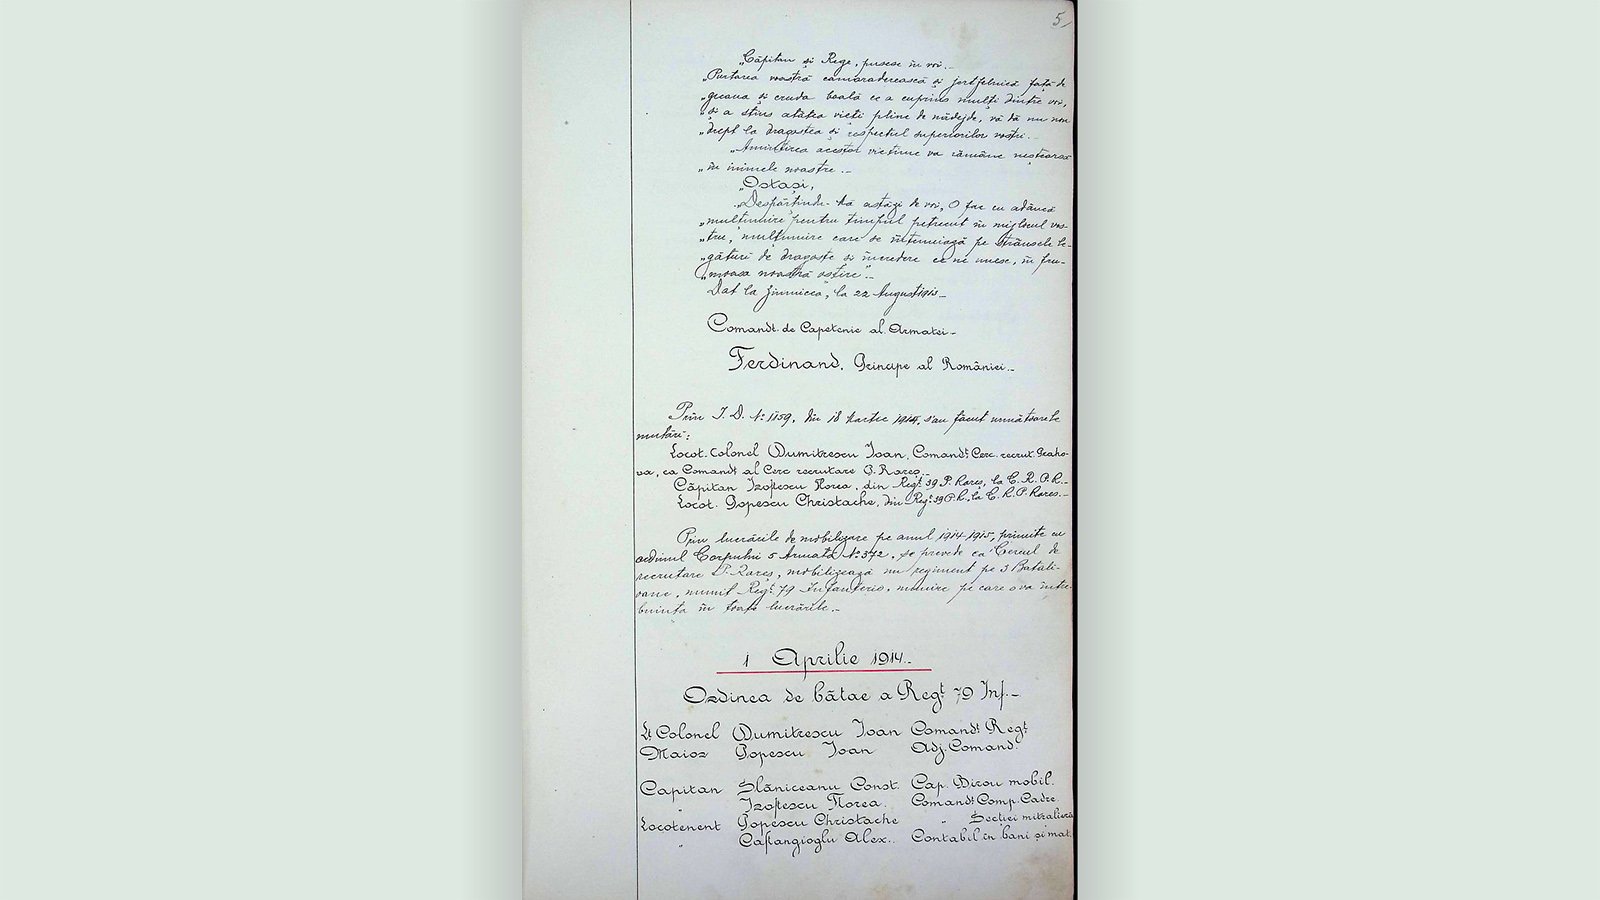 5
„Căpitan și Rege, pusese în voi._
„Purtarea voastră camaraderească și jertfelnică față de
„groaza și cruda boală ce a cuprins mulți dintre voi,
„și a stins atâtea vieți pline de nădejde, vă dă un nou
„drept la dragostea și respectul superiorilor voștri._
„Amintirea acestor victime va rămâne neștearsă
„în inimele noastre._
„Ostași,
„Despărțindu-Mă astăzi de voi, O fac cu adâncă
„mulțumire pentru timpul petrecut în mijlocul vos-
„tru, mulțumire care se întemeiază pe strânsele le-
„gături de dragoste și încredere ce ne unesc, în fru-
„moasa noastră oștire"._
Dat la Zimnicea, la 22 August 1913_
Comandt. de Capetenie al Armatei_
Ferdinand, Principe al României._
Prin I. D. No 1159, din 18 Martie 1914, s'au făcut următoarele
mutări:
Locot. Colonel Dumitrescu Ioan, Comandt. Cerc. recrut. Praho-
va, ca Comandt al Cerc recrutare P. Rareș._
Căpitan Izopescu Florea, din Regt. 39 P. Rareș, la C. R. P. R._
Locot. Popescu Christache, din Regt. 39 P. R., la C. R. P. Rareș._
Prin lucrările de mobilizare pe anul 1914-1915, primite cu
ordinul Corpului 5 Armată No 372, se prevede ca Cercul de
recrutare P. Rareș, mobilizează un regiment pe 3 Batali-
oane, numit Regt. 79 Infanterie, numire pe care o va între-
buința în toate lucrările._
1 Aprilie 1914._
Ordinea de bătae a Regt 79 Inf._
Lt. Colonel Dumitrescu Ioan Comandt Regt
Maior Popescu Ioan Adj. Comand.
Capitan Slăniceanu Const. Cap. Birou mobil.
" Izopescu Florea. Comandt Comp. Cadre.
Locotenent Popescu Christache " Secției mitraliere
" Castangioglu Alex.. Contabil în bani și mat.